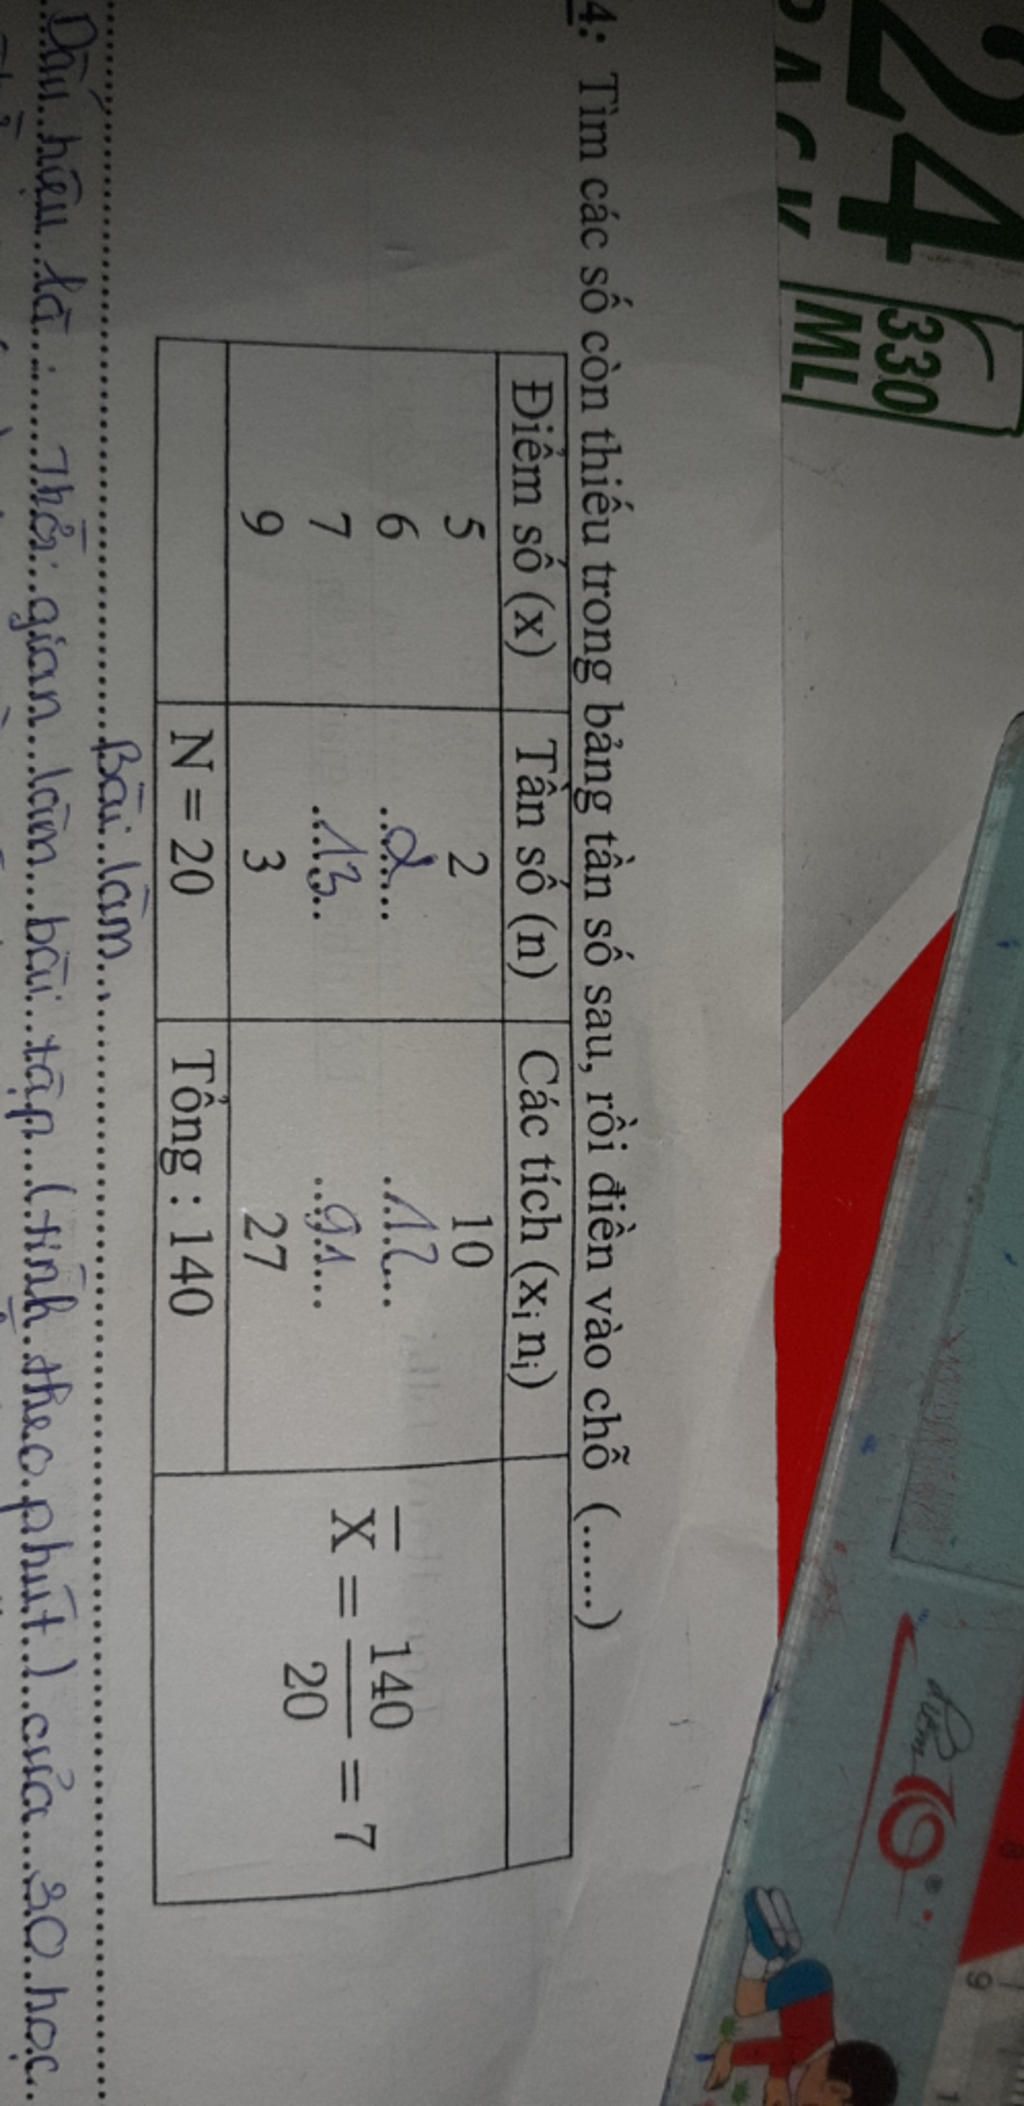 24
330
ML
PACK
điểm 10
4: Tìm các số còn thiếu trong bảng tần số sau, rồi điền vào chỗ (......)
Điểm số (x) Tần số (n) Các tích (xᵢ nᵢ)
5 2 10
6 ..2.... ..12...
7 ...13.. ...91...
9 3 27
X̄ = 140/20 = 7
N = 20 Tổng : 140
Bài làm
Dấu hiệu là : Thời gian làm bài tập (tính theo phút) của 30 học